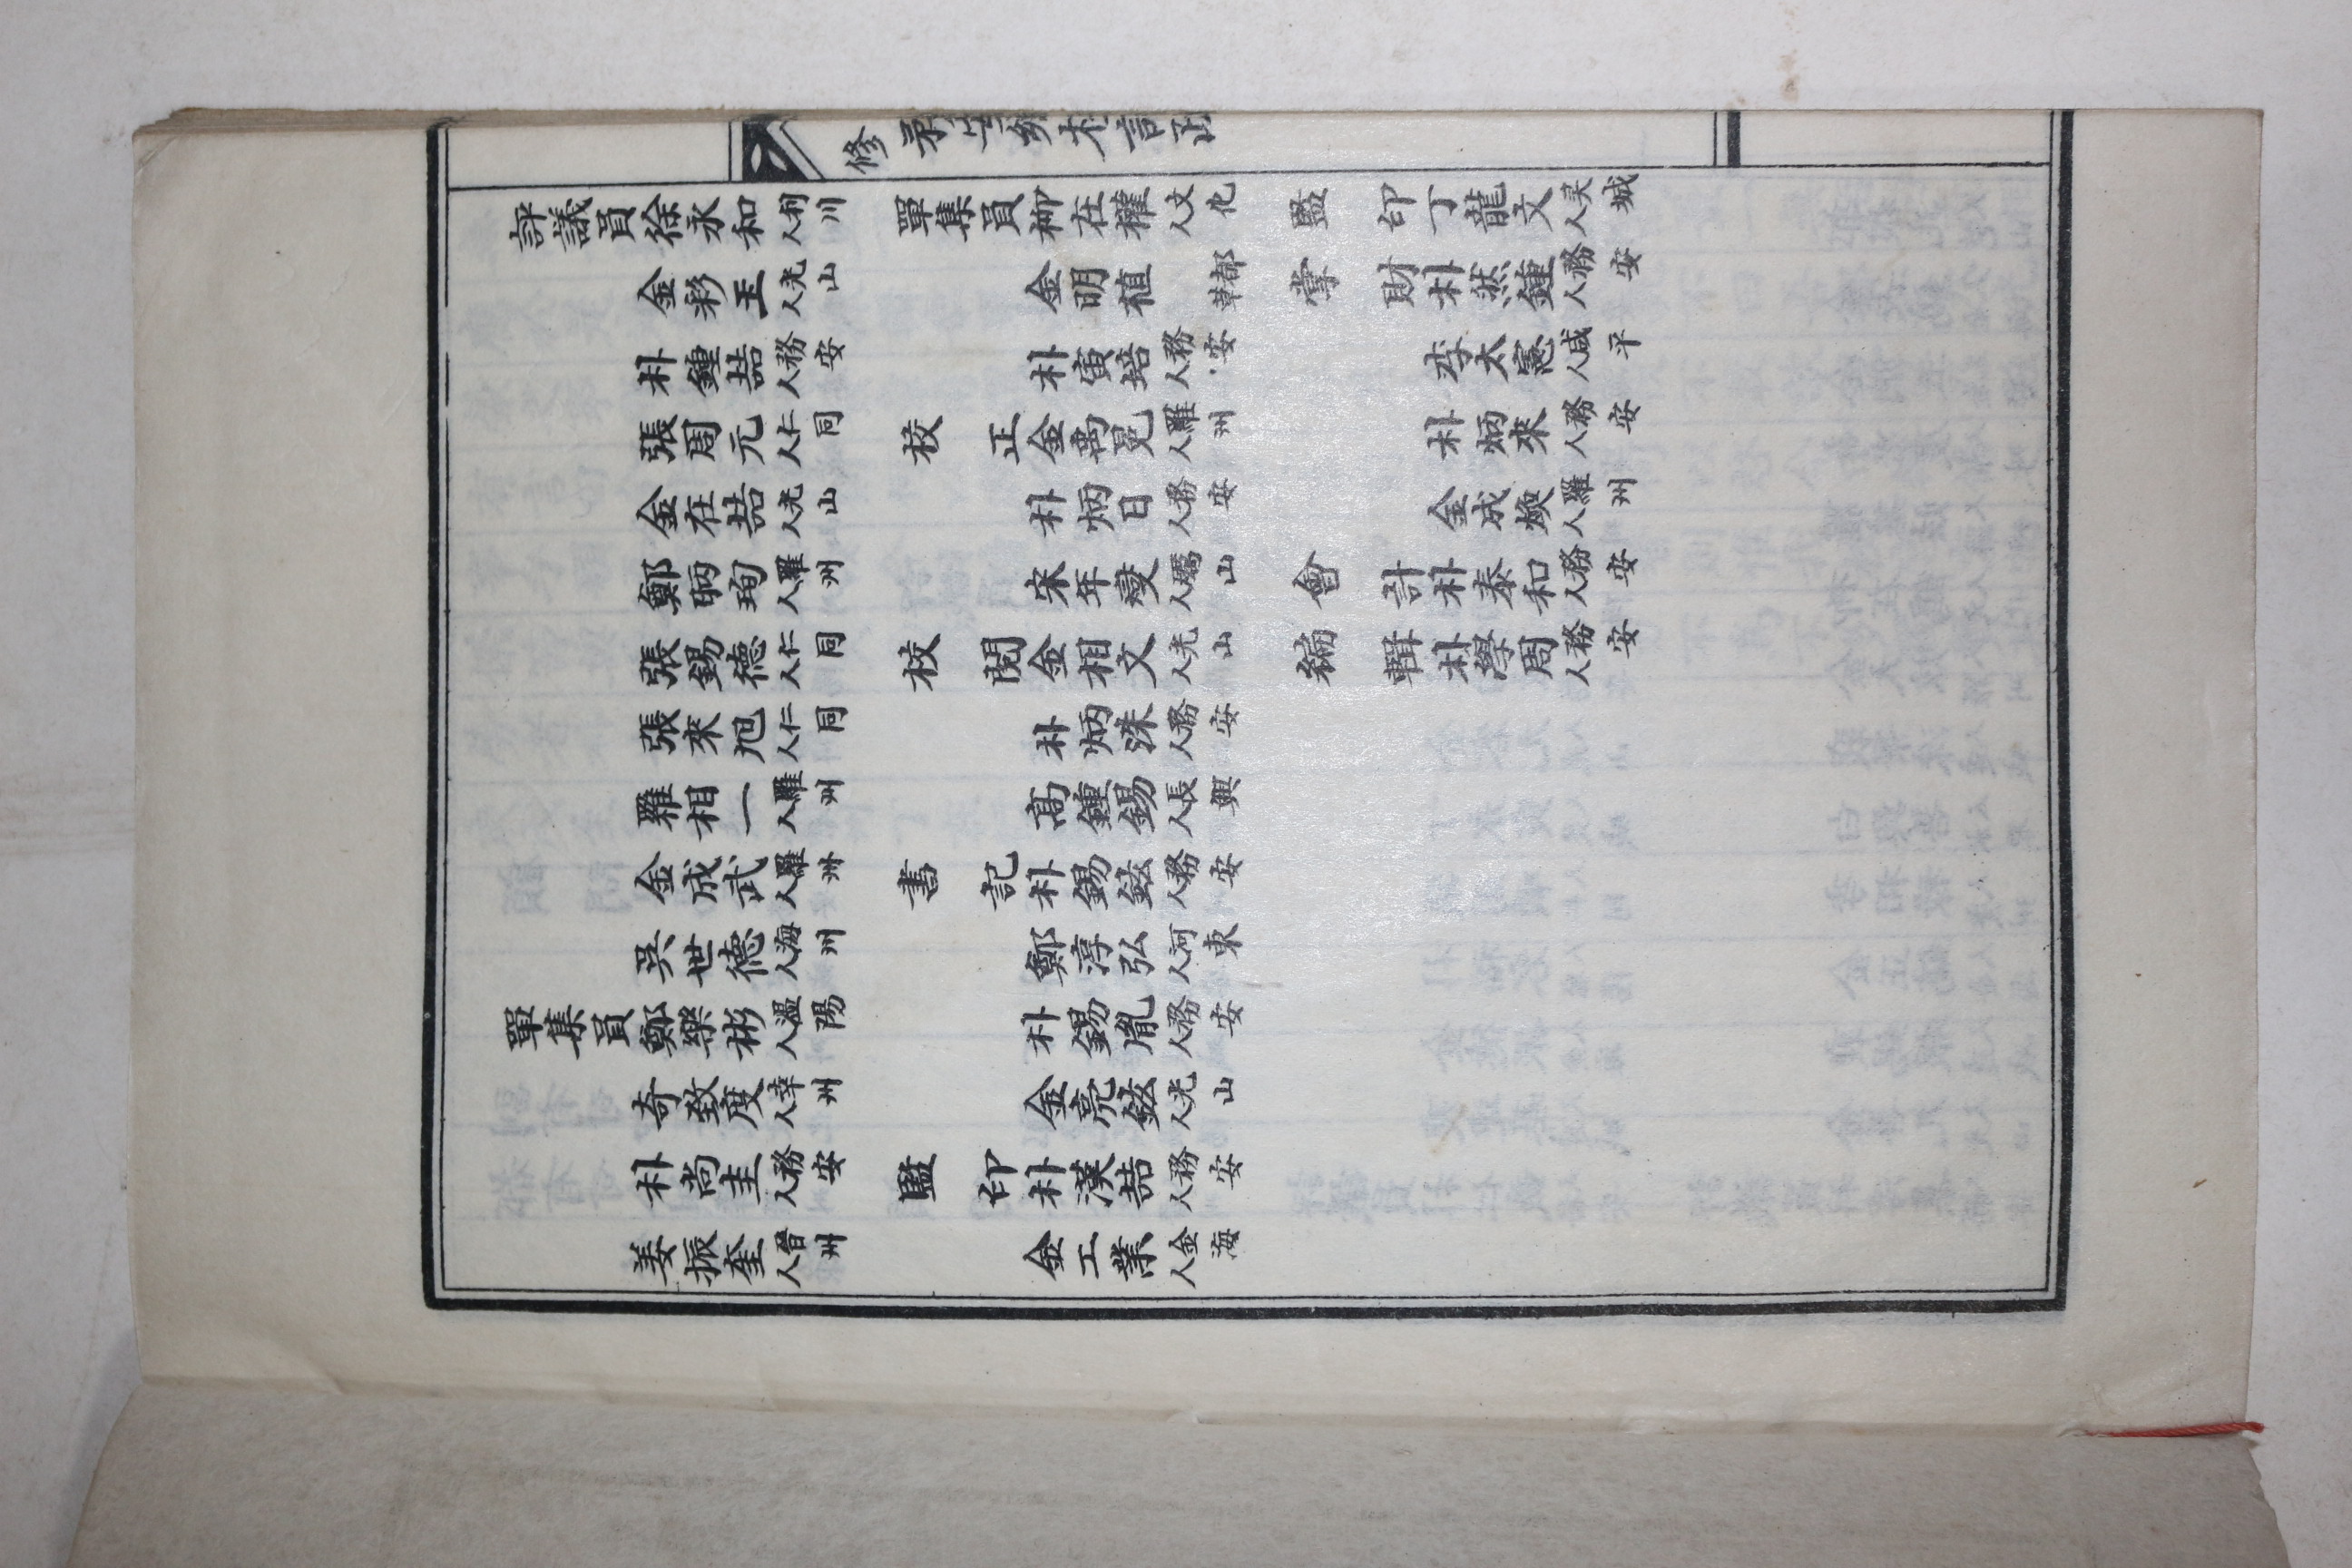 修
評議員徐永和利川人
金彩玉光山人
朴鍾喆務安人
張周元仁同人
金在喆光山人
鄭昞珣羅州人
張錫德仁同人
張來旭仁同人
羅相一羅州人
金成武羅州人
吳世德海州人
單集員鄭樂彬溫陽人
奇致度幸州人
朴尚圭務安人
姜振奎晉州人
單集員柳在權文化人
金明植
朴寅培務安人
校正金禹冕羅州人
朴炳日務安人
宋年燮礪山人
校閱金相文光山人
朴炳洙務安人
高鍾錫長興人
書記朴錫鉉務安人
鄭淳弘河東人
朴錫胤務安人
金亮鉉光山人
監印朴漢喆務安人
金工業金海人
監印丁龍文
掌財朴然鍾務安人
李太憲咸平人
朴炳來務安人
金成煥羅州人
會計朴泰和務安人
編輯朴學周務安人